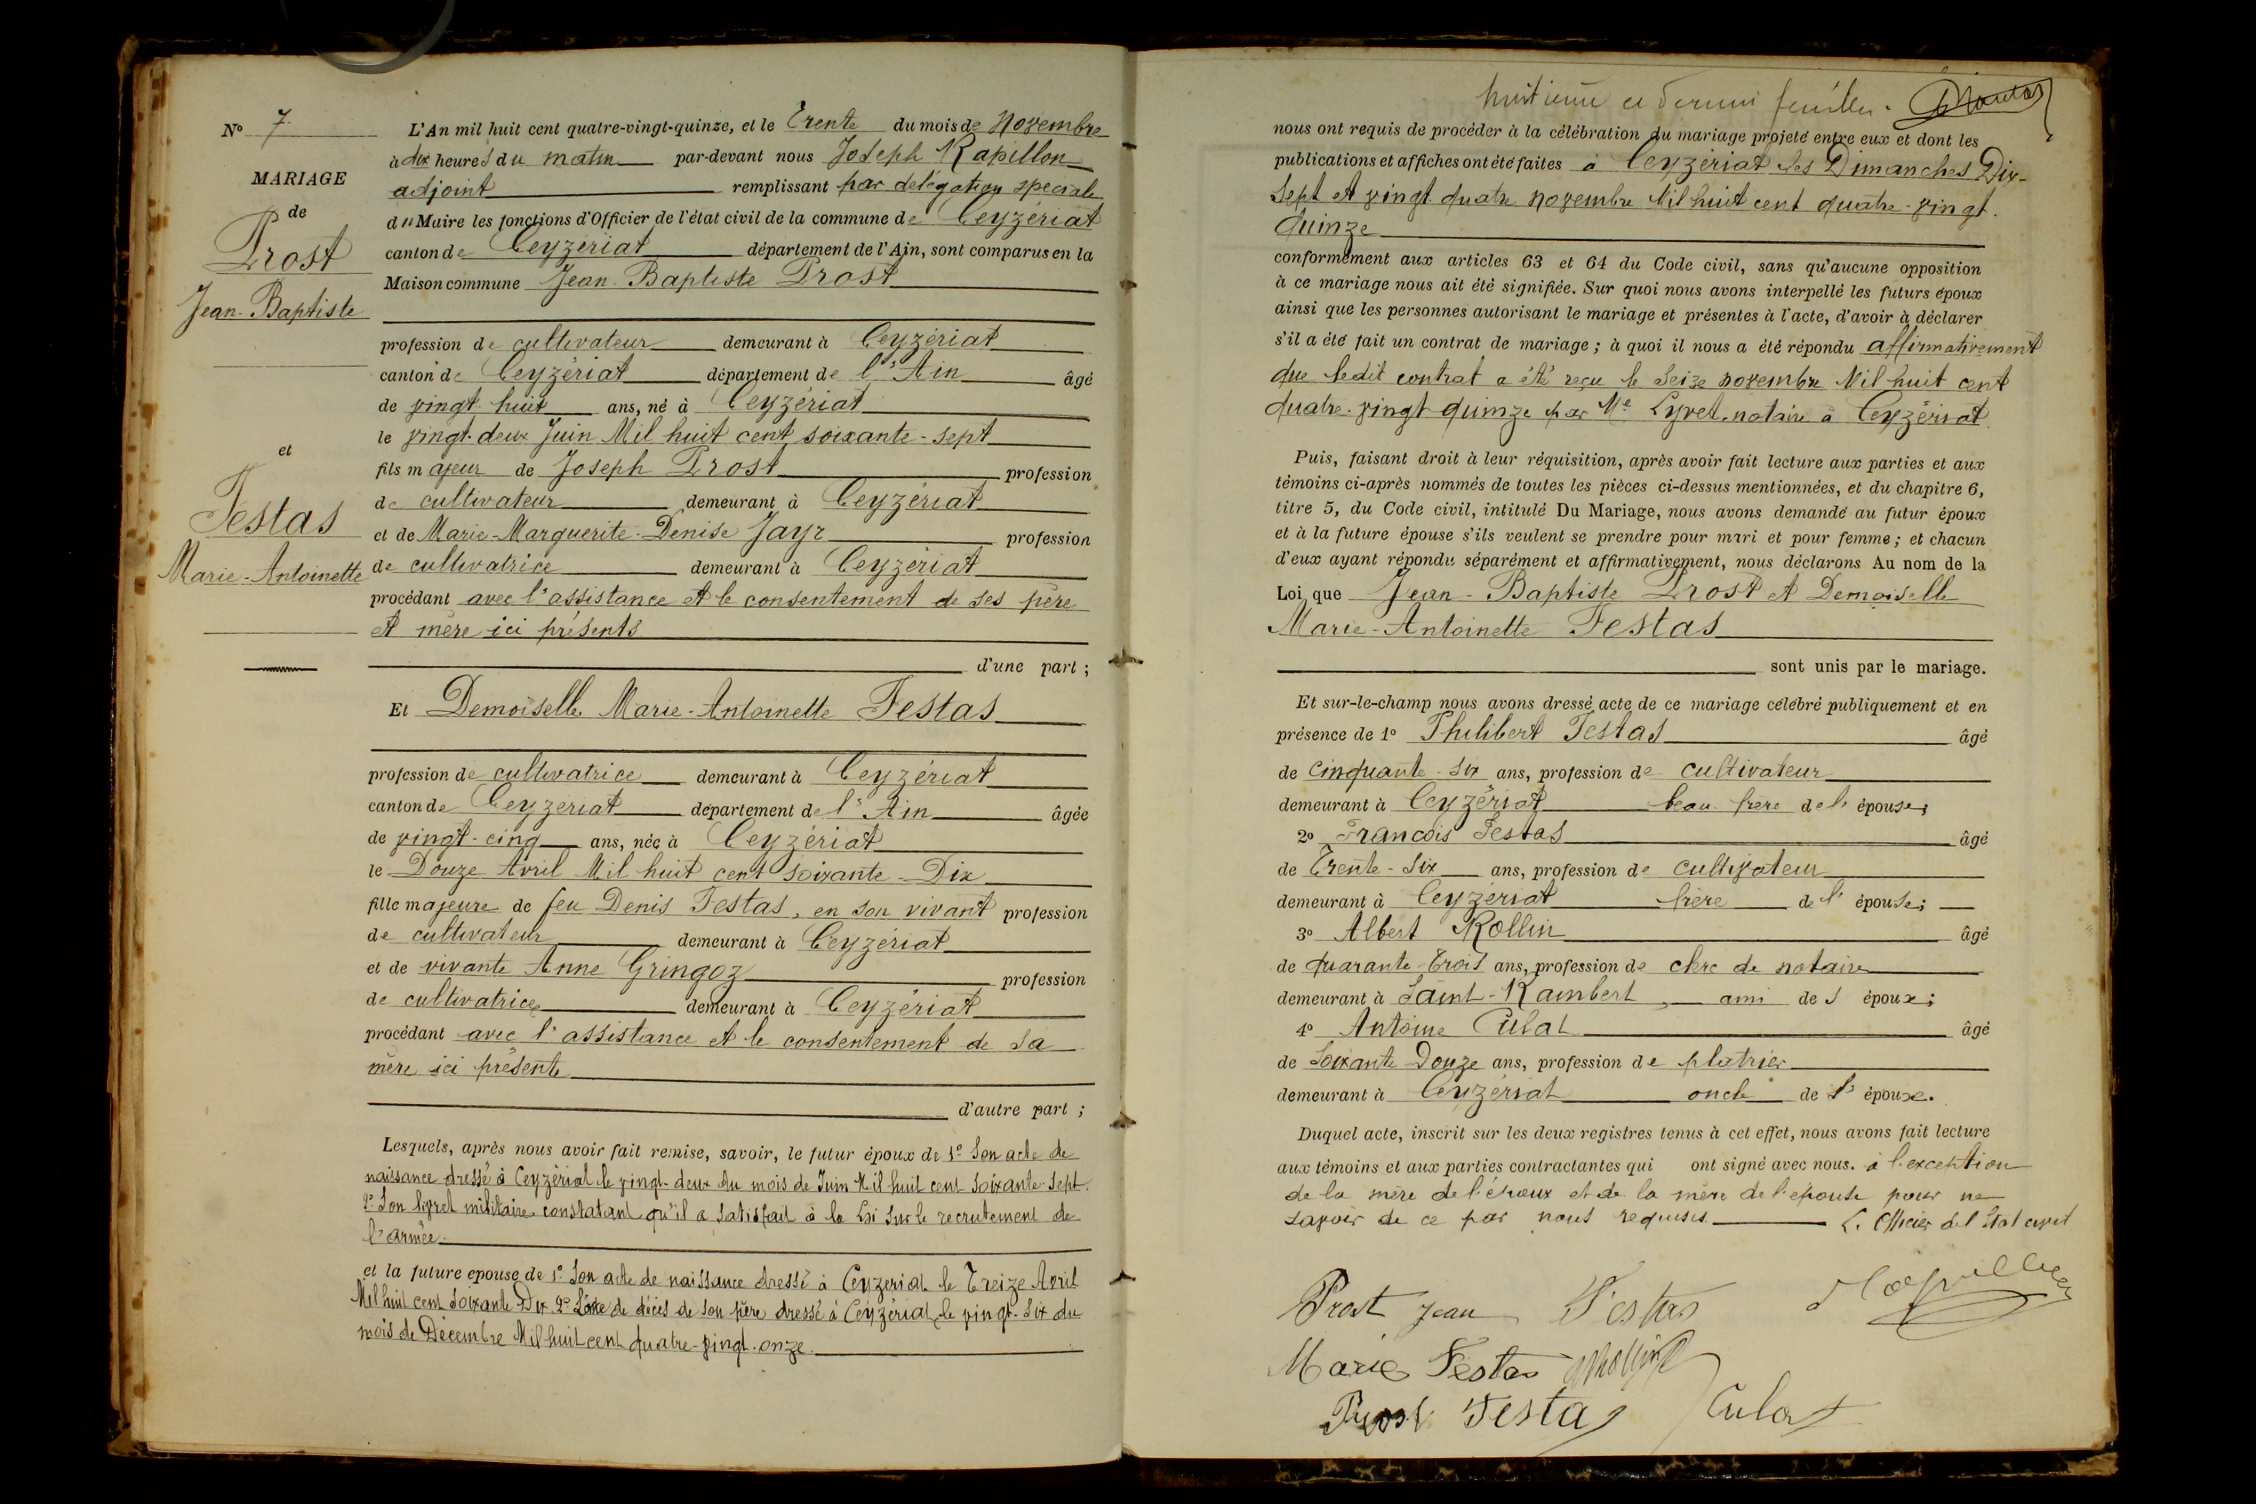 N° 7
MARIAGE
de
Prost
Jean-Baptiste
et
Testas
Marie-Antoinette
L'An mil huit cent quatre-vingt-quinze, et le Trente du mois de Novembre
à dix heures du matin par-devant nous Joseph Rapillon
adjoint remplissant par délégation spéciale
du Maire les fonctions d'Officier de l'état civil de la commune de Ceyzériat
canton de Ceyzériat département de l'Ain, sont comparus en la
Maison commune Jean-Baptiste Prost
profession de cultivateur demeurant à Ceyzériat
canton de Ceyzériat département de l'Ain âgé
de vingt-huit ans, né à Ceyzériat
le vingt-deux Juin Mil huit cent soixante-sept
fils majeur de Joseph Prost profession
de cultivateur demeurant à Ceyzériat
et de Marie-Marguerite-Denise Jayr profession
de cultivatrice demeurant à Ceyzériat
procédant avec l'assistance et le consentement de ses père
et mère ici présents
d'une part ;
Et Demoiselle Marie-Antoinette Testas
profession de cultivatrice demeurant à Ceyzériat
canton de Ceyzériat département de l'Ain âgée
de vingt-cinq ans, née à Ceyzériat
le Douze Avril Mil huit cent soixante-Dix
fille majeure de feu Denis Testas, en son vivant profession
de cultivateur demeurant à Ceyzériat
et de vivante Anne Gringoz profession
de cultivatrice demeurant à Ceyzériat
procédant avec l'assistance et le consentement de sa
mère ici présente
d'autre part ;
Lesquels, après nous avoir fait remise, savoir, le futur époux de 1° Son acte de
naissance dressé à Ceyzériat le vingt-deux du mois de Juin Mil huit cent soixante-sept.
2° Son livret militaire constatant qu'il a satisfait à la Loi sur le recrutement de
l'armée.
et la future épouse de 1° Son acte de naissance dressé à Ceyzériat le Treize Avril
Mil huit cent soixante Dix 2° L'acte de décès de son père dressé à Ceyzériat, le vingt-six du
mois de Décembre Mil huit cent quatre-vingt-onze.
huitième et dernier feuillet.
nous ont requis de procéder à la célébration du mariage projeté entre eux et dont les
publications et affiches ont été faites à Ceyzériat les Dimanches Dix-
sept et vingt quatre novembre Mil huit cent quatre-vingt
quinze
conformément aux articles 63 et 64 du Code civil, sans qu'aucune opposition
à ce mariage nous ait été signifiée. Sur quoi nous avons interpellé les futurs époux
ainsi que les personnes autorisant le mariage et présentes à l'acte, d'avoir à déclarer
s'il a été fait un contrat de mariage ; à quoi il nous a été répondu affirmativement
que ledit contrat a été reçu le seize novembre Mil huit cent
quatre-vingt quinze par Me Lyvet, notaire à Ceyzériat.
Puis, faisant droit à leur réquisition, après avoir fait lecture aux parties et aux
témoins ci-après nommés de toutes les pièces ci-dessus mentionnées, et du chapitre 6,
titre 5, du Code civil, intitulé Du Mariage, nous avons demandé au futur époux
et à la future épouse s'ils veulent se prendre pour mari et pour femme ; et chacun
d'eux ayant répondu séparément et affirmativement, nous déclarons Au nom de la
Loi que Jean-Baptiste Prost et Demoiselle
Marie-Antoinette Testas
sont unis par le mariage.
Et sur-le-champ nous avons dressé acte de ce mariage célébré publiquement et en
présence de 1° Philibert Testas âgé
de cinquante-six ans, profession de cultivateur
demeurant à Ceyzériat beau-frère de l'épouse;
2° François Testas âgé
de Trente-six ans, profession de cultivateur
demeurant à Ceyzériat frère de l'épouse;
3° Albert Rollin âgé
de quarante-trois ans, profession de clerc de notaire
demeurant à Saint-Rambert, ami des époux;
4° Antoine Culat âgé
de soixante Douze ans, profession de platrier
demeurant à Ceyzériat oncle de l'époux.
Duquel acte, inscrit sur les deux registres tenus à cet effet, nous avons fait lecture
aux témoins et aux parties contractantes qui ont signé avec nous. à l'exception
de la mère de l'époux et de la mère de l'épouse pour ne
savoir de ce par nous requises. L'Officier de l'état civil
Prost Jean Testas Rapillon
Marie Testas ARollin
Prost Testas Culat